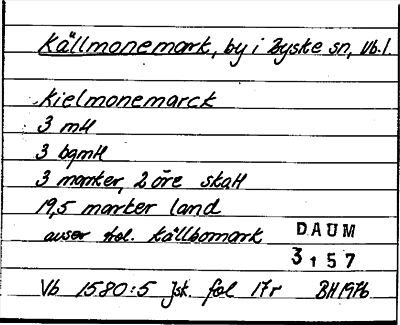 Källmonemark, by i Byske sn, Vb. l.
Kielmonemarck
3 mtl
3 bgmtl
3 marker, 2 öre skatt
19,5 marker land
avser trol. Källbomark
DAUM
3157
Vb 1580:5 jsk. fol 17r BH 1976